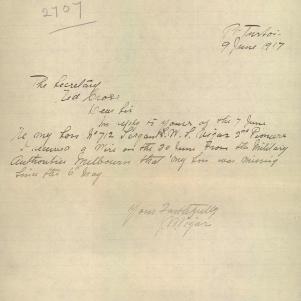 2707
9 June 1917
The Secretary
Red Cross
Dear Sir
in reply to yours of the 7 June
re my Son No 712 W. S. 3rd Pioneers
I received a Wire on the 20 June from the Military
Authorities Melbourne that my son was missing
since the 6th May.
Yours Faithfully